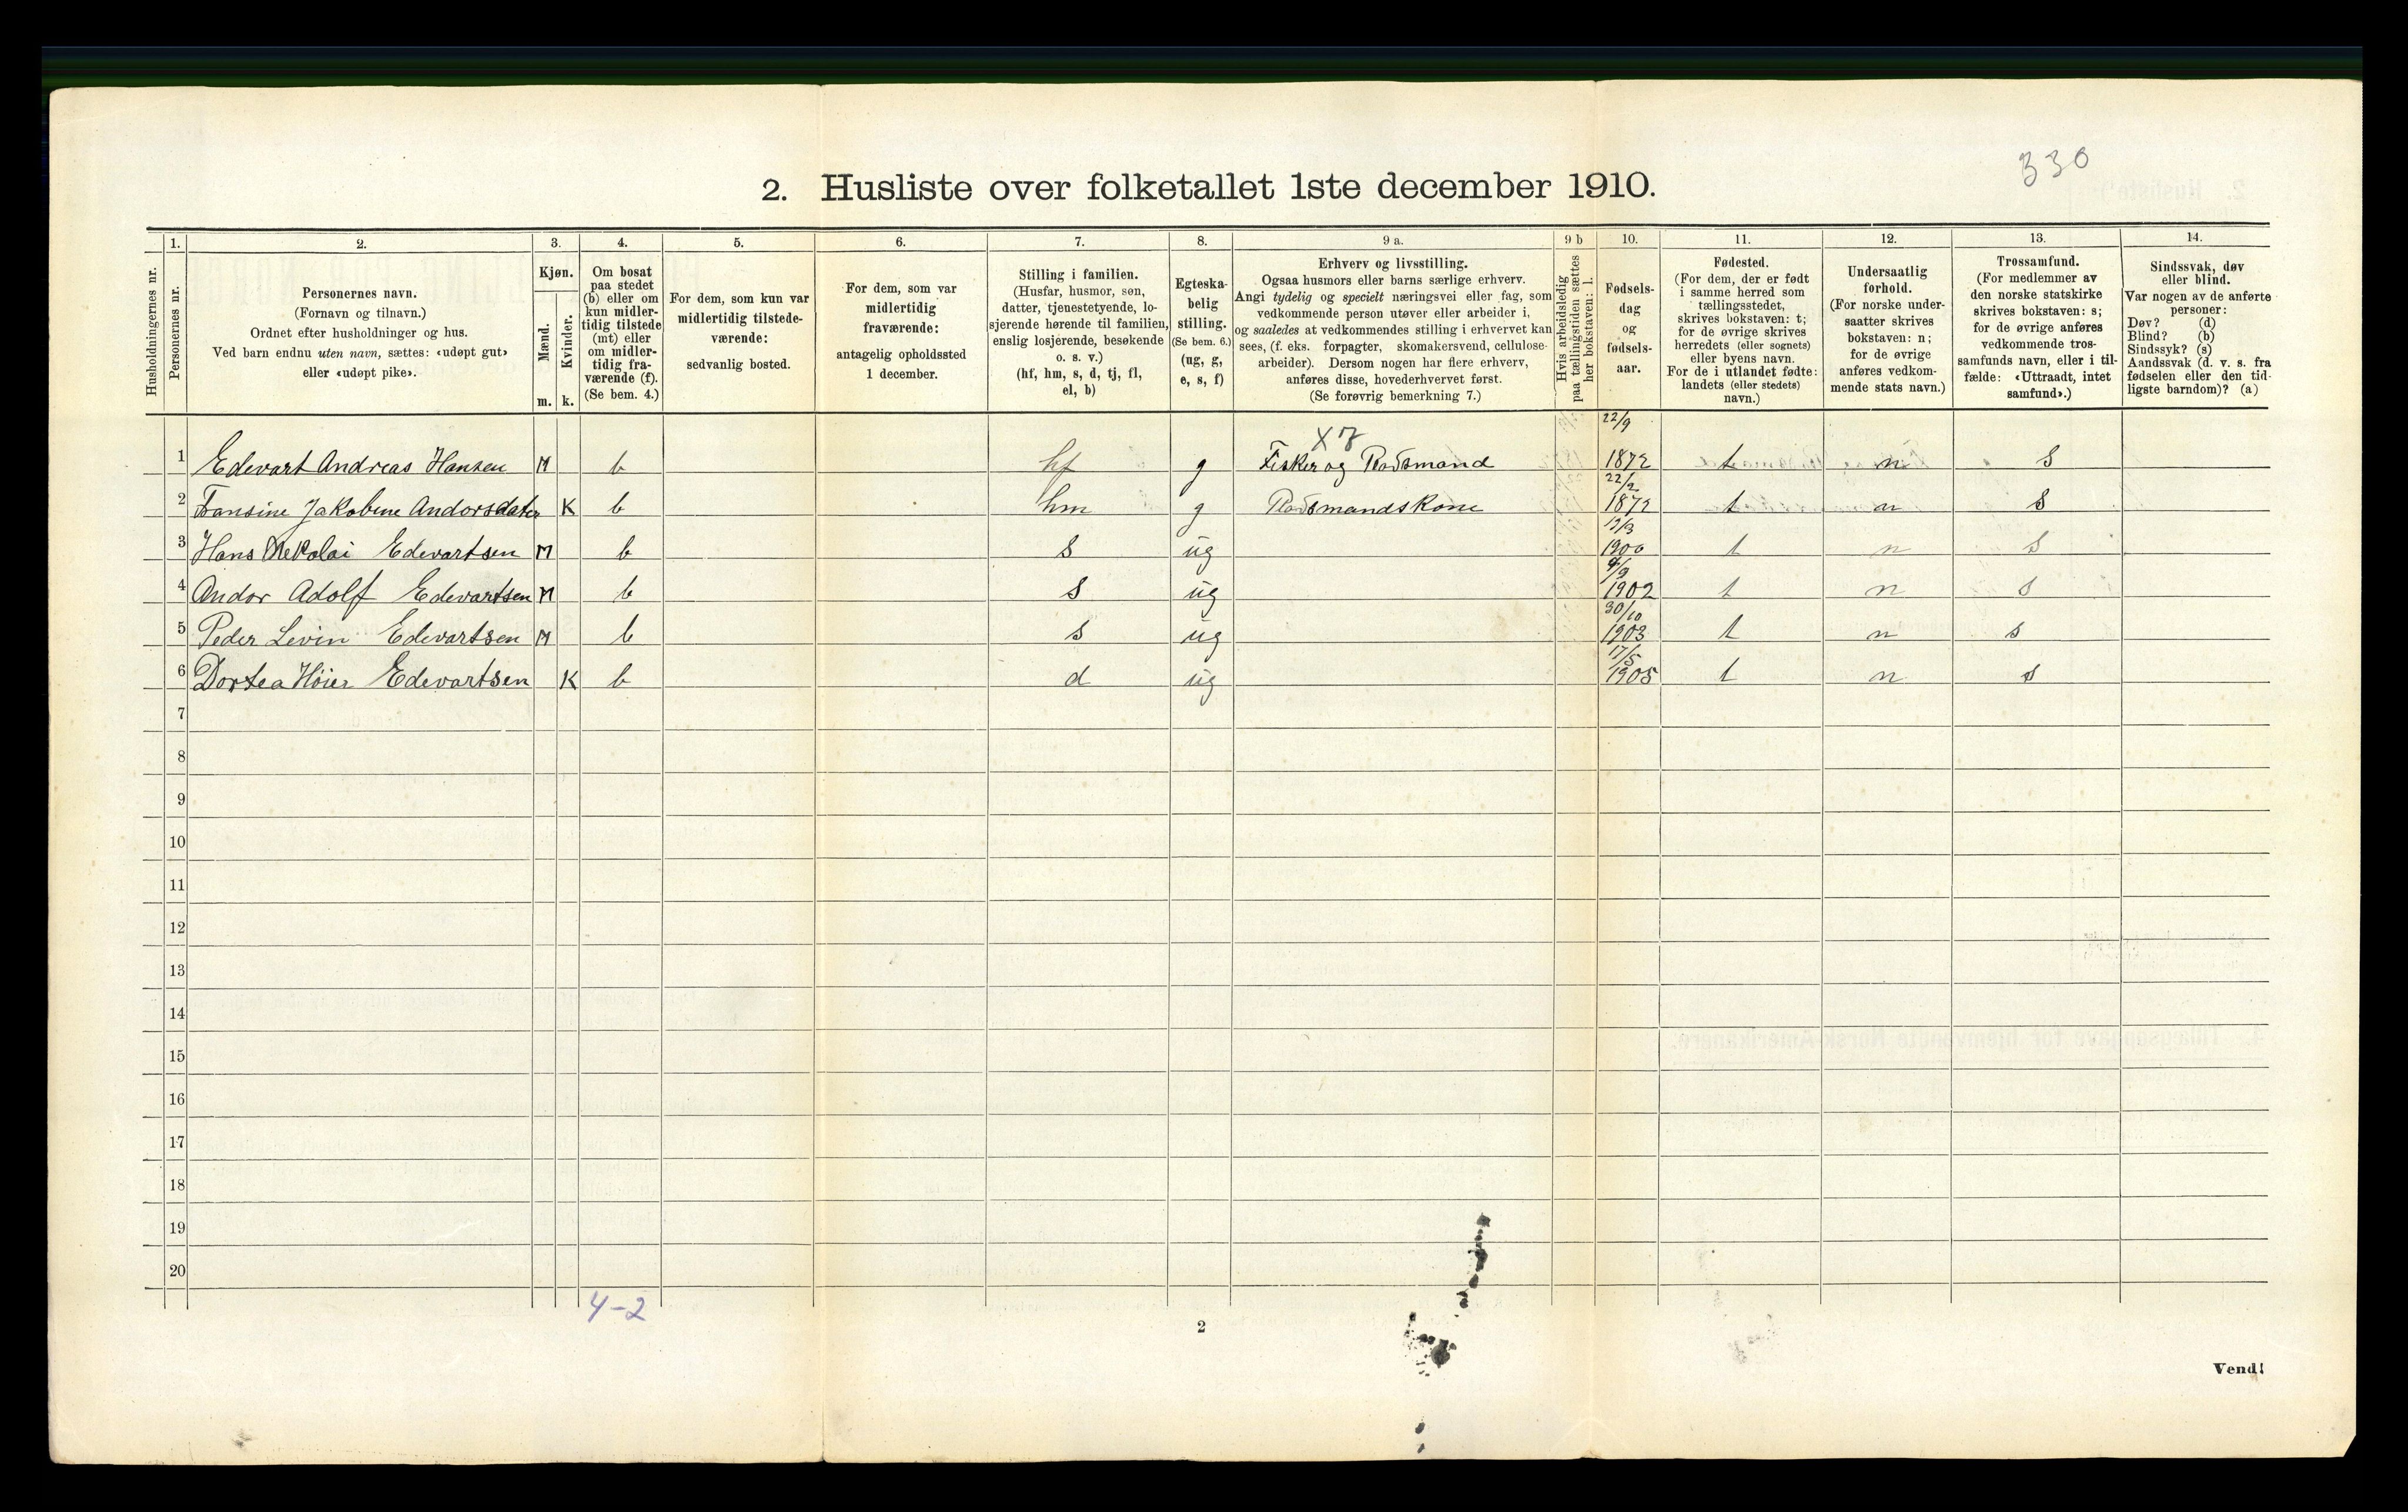 330
2. Husliste over folketallet 1ste december 1910.
1. 2. 3. 4. 5. 6. 7. 8. 9 a. 9 b 10. 11. 12. 13. 14.
Husholdningernes nr.
Personernes nr.
Personernes navn.
(Fornavn og tilnavn.)
Ordnet efter husholdninger og hus.
Ved barn endnu uten navn, sættes: «udøpt gut»
eller «udøpt pike».
Kjøn.
Mænd.
Kvinder.
m. k.
Om bosat
paa stedet
(b) eller om
kun midler-
tidig tilstede
(mt) eller
om midler-
tidig fra-
værende (f).
(Se bem. 4.)
For dem, som kun var
midlertidig tilstede-
værende:
sedvanlig bosted.
For dem, som var
midlertidig
fraværende:
antagelig opholdssted
1 december.
Stilling i familien.
(Husfar, husmor, søn,
datter, tjenestetyende, lo-
sjerende hørende til familien,
enslig losjerende, besøkende
o. s. v.)
(hf, hm, s, d, tj, fl,
el, b)
Egteska-
belig
stilling.
(Se bem. 6.)
(ug, g,
e, s, f)
Erhverv og livsstilling.
Ogsaa husmors eller barns særlige erhverv.
Angi tydelig og specielt næringsvei eller fag, som
vedkommende person utøver eller arbeider i,
og saaledes at vedkommendes stilling i erhvervet kan
sees, (f. eks. forpagter, skomakersvend, cellulose-
arbeider). Dersom nogen har flere erhverv,
anføres disse, hovederhvervet først.
(Se forøvrig bemerkning 7.)
Hvis arbeidsledig
paa tællingstiden sættes
her bokstaven: l.
Fødsels-
dag
og
fødsels-
aar.
Fødested.
(For dem, der er født
i samme herred som
tællingsstedet,
skrives bokstaven: t;
for de øvrige skrives
herredets (eller sognets)
eller byens navn.
For de i utlandet fødte:
landets (eller stedets)
navn.)
Undersaatlig
forhold.
(For norske under-
saatter skrives
bokstaven: n;
for de øvrige
anføres vedkom-
mende stats navn.)
Trossamfund.
(For medlemmer av
den norske statskirke
skrives bokstaven: s;
for de øvrige anføres
vedkommende tros-
samfunds navn, eller i til-
fælde: «Uttraadt, intet
samfund».)
Sindssvak, døv
eller blind.
Var nogen av de anførte
personer:
Døv? (d)
Blind? (b)
Sindssyk? (s)
Aandssvak (d. v. s. fra
fødselen eller den tid-
ligste barndom)? (a)
X 7 22/9
1 Edevart Andreas Hansen M b hf g Fisker og Rorsmand 1872 t n S
22/2
2 Fransine Jakobine Andorsdater K b hm g Rorsmandskone 1872 t n S
3 Hans Nekolai Edevartsen M b S ug 1900 t n S
4/9
4 Andor Adolf Edevartsen M b S ug 1902 t n s
30/10
5 Peder Levin Edevartsen M b s ug 1903 t n s
17/5
6 Dortea Høier Edevartsen K b d ug 1905 t n s
7
8
9
10
11
12
13
14
15
16
17
18
19
20
4-2
2
Vend!